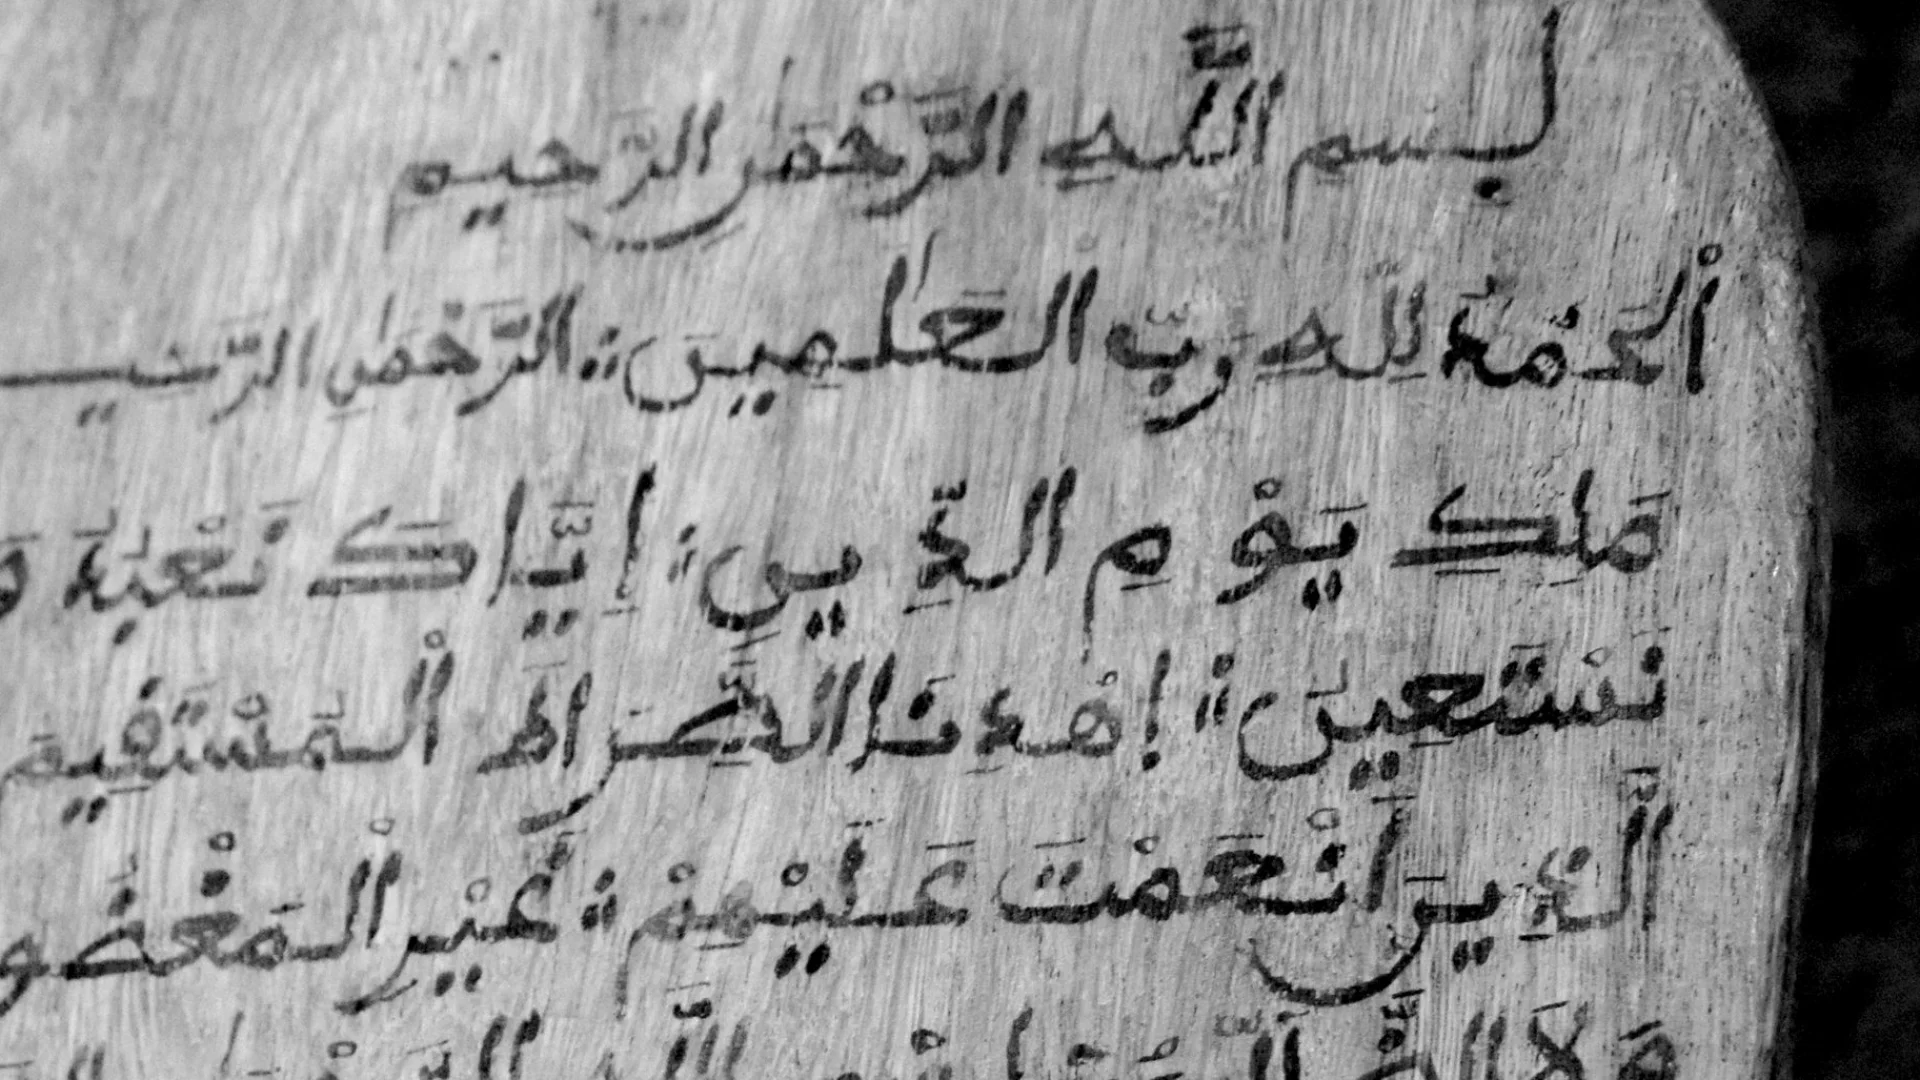 بسم اللّه الرّحْمٰن الرّحيم
اَلْحَمْدُ لِلهِ رَبِّ الْعَٰلَمِينَ ؛ الرَّحْمٰنِ الرَّحيـ
مَلِكِ يَوْمِ الدِّينِ ؛ إِيَّاكَ نَعْبُدُ وَ
نَسْتَعِينُ ؛ اِهْدِنَا الصِّرَاطَ الْمُسْتَقِيمَ
الَّذِينَ أَنْعَمْتَ عَلَيْهِمْ ؛ غَيْرِ الْمَغْضُو